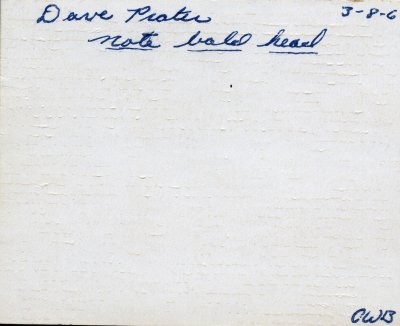 Dave Prater 3-8-6
note bald head
CWB